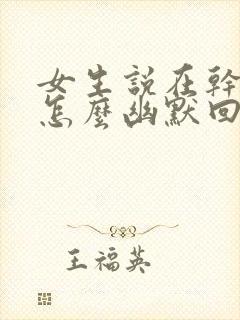 女生説在幹
怎麼幽默回
王福英